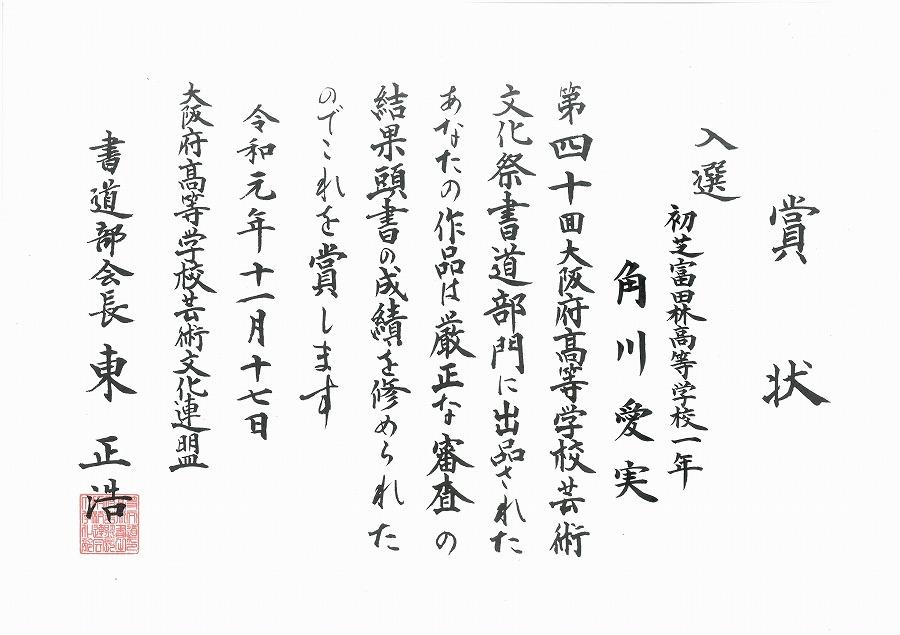 賞状
入選
初芝富田林高等学校一年
角川愛実
第四十回大阪府高等学校芸術
文化祭書道部門に出品された
あなたの作品は厳正な審査の
結果頭書の成績を修められた
のでこれを賞します
令和元年十一月十七日
大阪府高等学校芸術文化連盟
書道部会長 東正浩